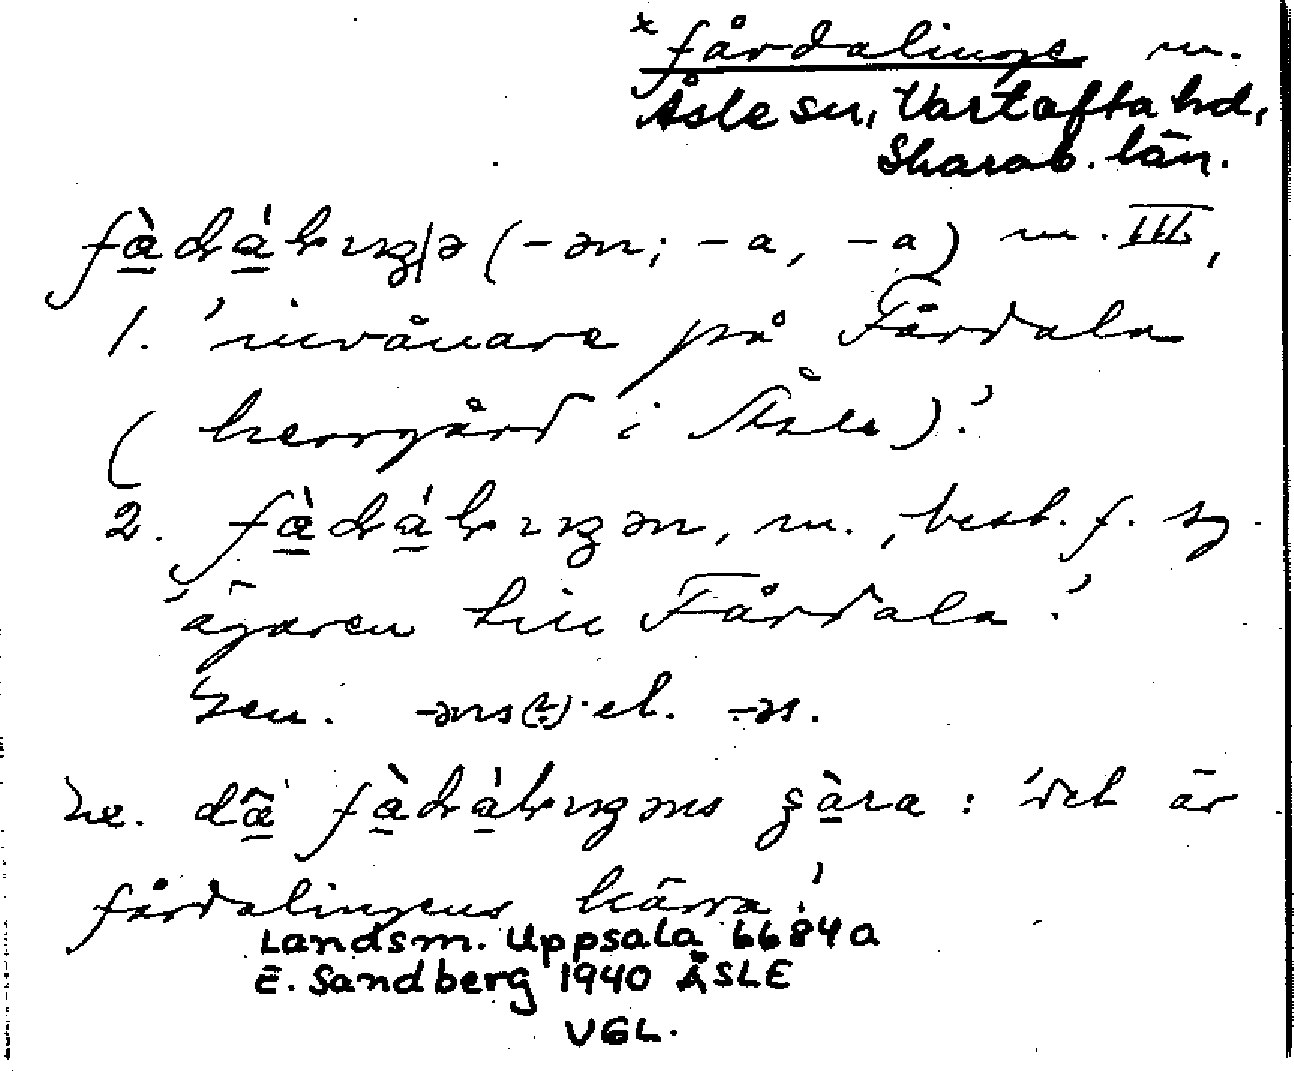 * fårdalinge m.
Åsle sn, Vartofta hd,
Skarab. län.
fàdɑ́lıŋ|ə (-ən; -a, -a) m. III,
1. 'invånare på Fårdala
(herrgård i Åsle).'
2. fàdɑ́lıŋən, m., best. f. sg.
'ägaren till Fårdala.'
Gen. -əns(?) el. -əs.
Se. dä fàdɑ́lıŋəns
: 'det är
fårdalingens kärra.'
Landsm. Uppsala 6684a
E. Sandberg 1940 ÅSLE
VGL.